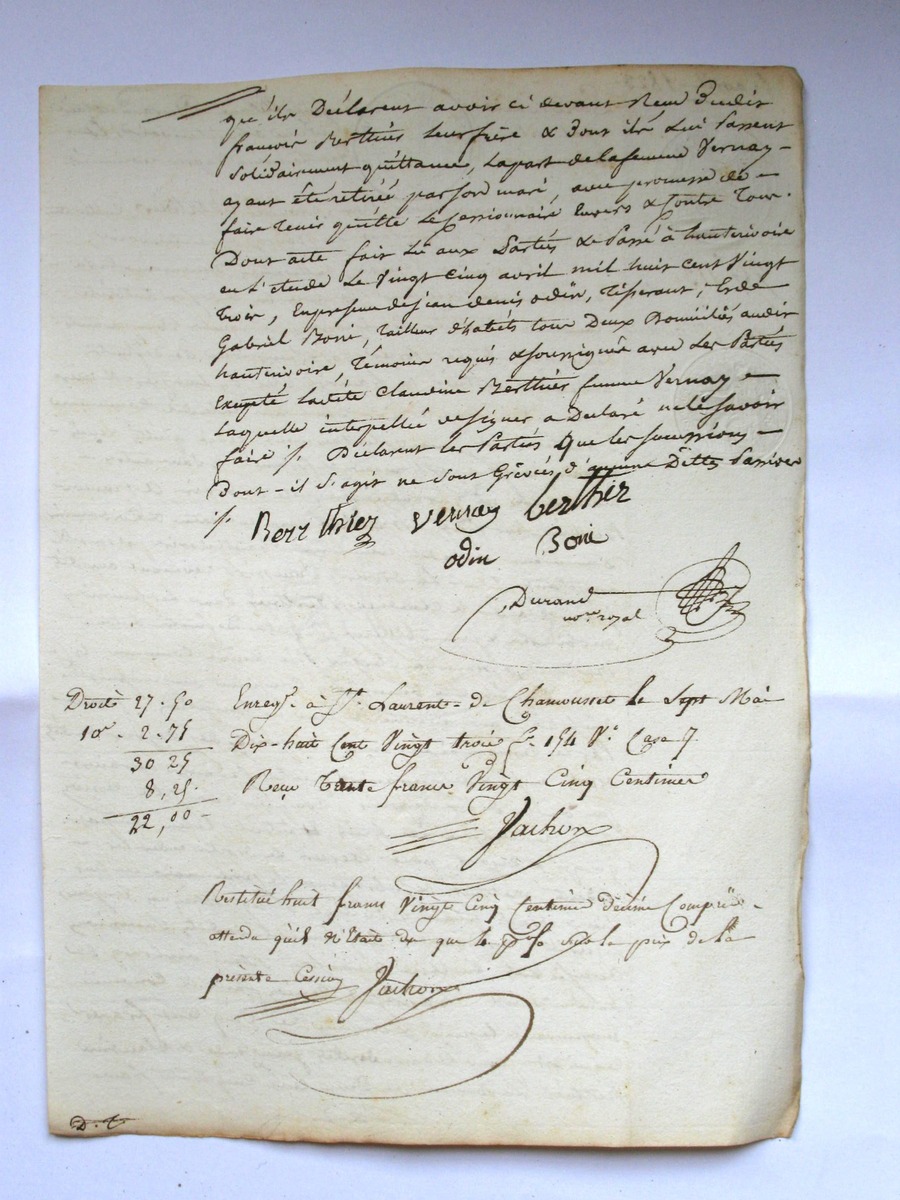 qu'ils Déclarent avoir ci devant Recu Dudit
francois Berthiés leur frère & Dont ils Lui Passent
Solidairement quittance, Lapart delafemme Vernay -
ayant été retirée par son mari, avec promesse de -
faire Tenir quitte Le Cessionnaire Envers & Contre Tous.
Dont acte fait Lu aux Partiés & Passé à hauterivoire
en L'étude Le Vingt Cinq avril mil huit cent Vingt
Trois, Enpresence dejean denis odin, Tisserant, Et de
Gabriel Boni, Tailleur d'habits tous Deux Domiciliés audit
hauterivoire, Témoins requis & soussignés avec Les Partiés
Excepté Ladite Claudine Berthiés femme Vernay -
Laquelle interpellée designer a Declaré nelesavoir
faire ./. Déclarent les Partiés que les successions -
Dont - il S'agit ne Sont Grévées d'aucune Dettes Passives
./. Berthier Vernay berthier
odin Boni
Durand
no.re royal
Droits 27.50 Enreg.é à St. Laurent - de Chamousset le Sept Mai
10.e 2.75 Dix-huit Cent Vingt trois f.o 154 V.o Case 7.
30 25 Reçu Trente francs Vingt Cinq Centimes
8,25.
22,00 - Jachon
Restitué huit francs Vingt Cinq Centimes décime Compris -
attendu qu'il n'était du que le sur le prix de la
présente Cession Jachon
D. T.